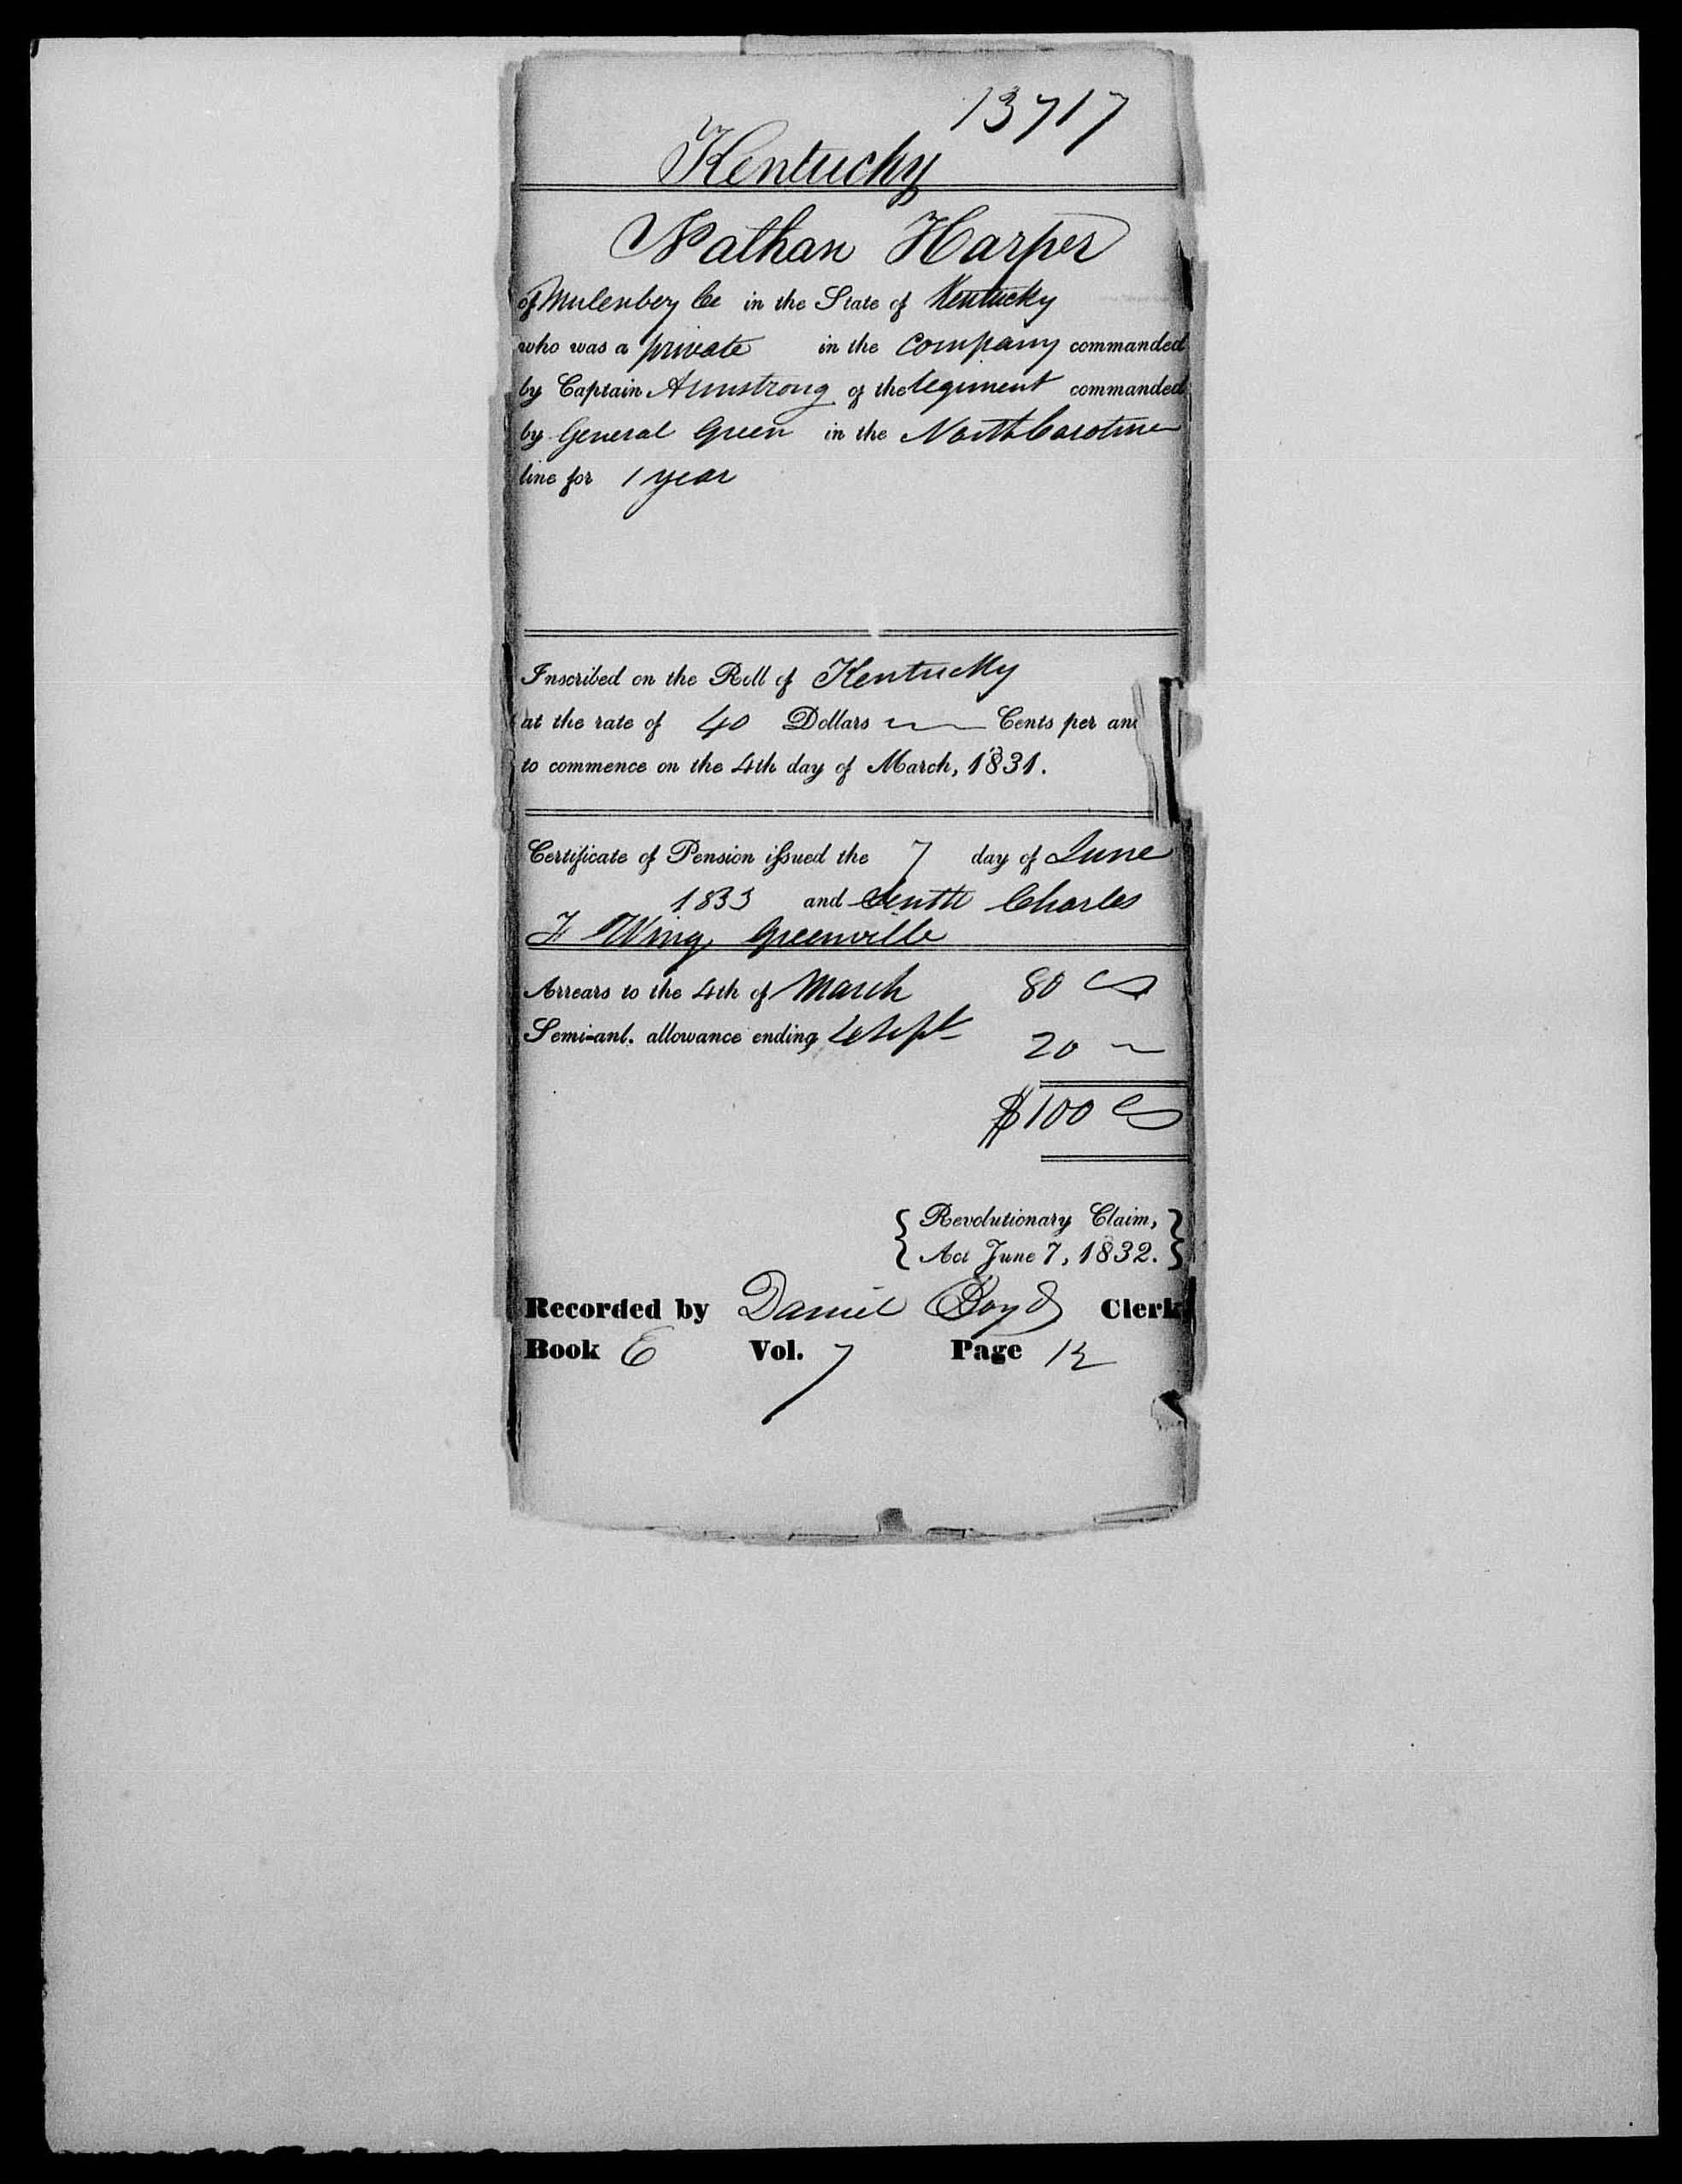 13717
Kentucky
Nathan Harper
of Mulenberg Co in the State of Kentucky
who was a private in the Company commanded
by Captain Armstrong of the Regiment commanded
by General Green in the North Carolina
line for 1 year
Inscribed on the Roll of Kentucky
at the rate of 40 Dollars Cents per an
to commence on the 4th day of March, 1831.
Certificate of Pension issued the 7 day of June
1833 and Charles
F Wing Greenville
Arrears to the 4th of March 80
Semi-anl. allowance ending 4 Sept 20
$100
{ Revolutionary Claim, }
{ Act June 7, 1832. }
Recorded by Daniel Boyd Clerk
Book E Vol. 7 Page